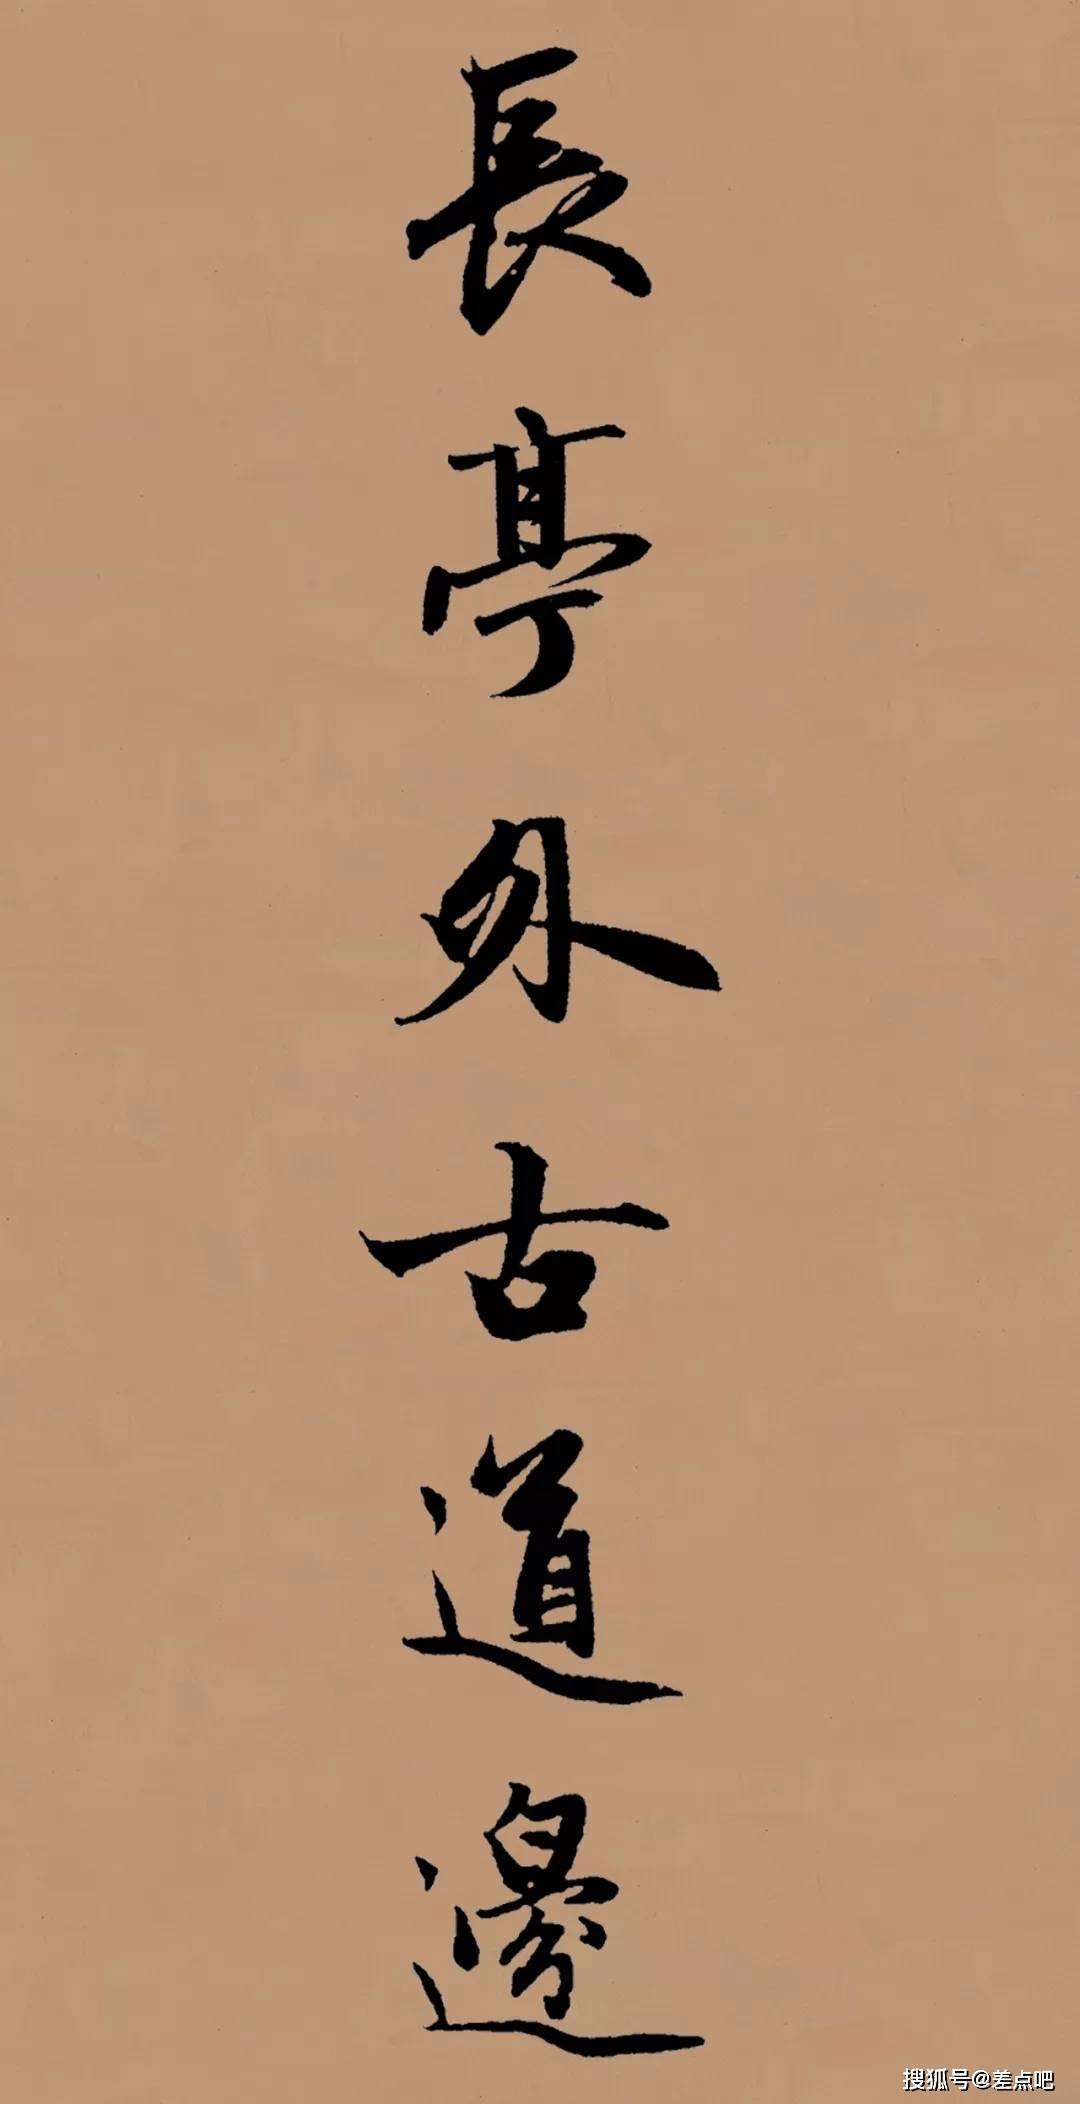 長亭外古道邊
搜狐号@差点吧